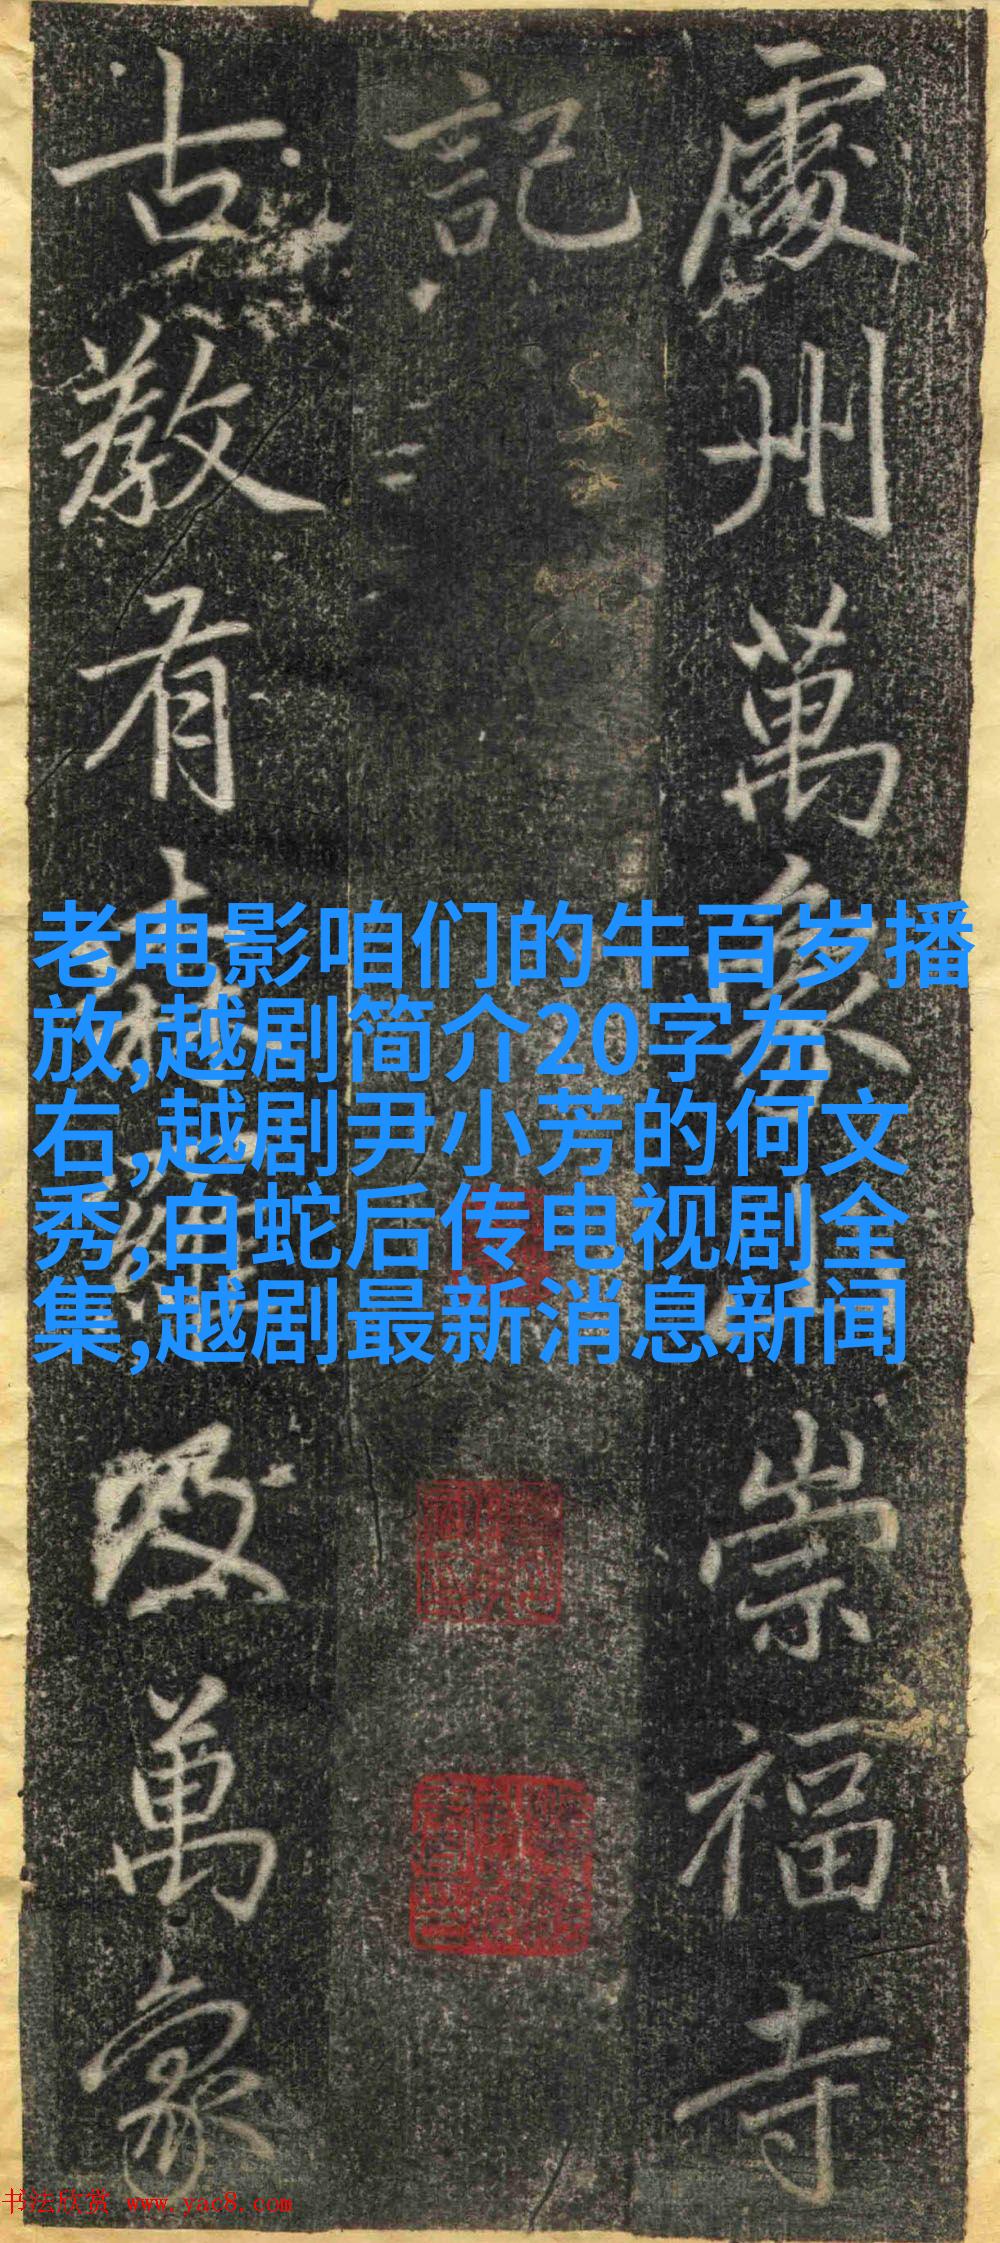 處州萬象崇福寺
記
古教有萬象
老电影咱们的牛百岁播
放,越剧简介20字左
右,越剧尹小芳的何文
秀,白蛇后传电视剧全
集,越剧最新消息新闻
书法欣赏 www.yac8.com